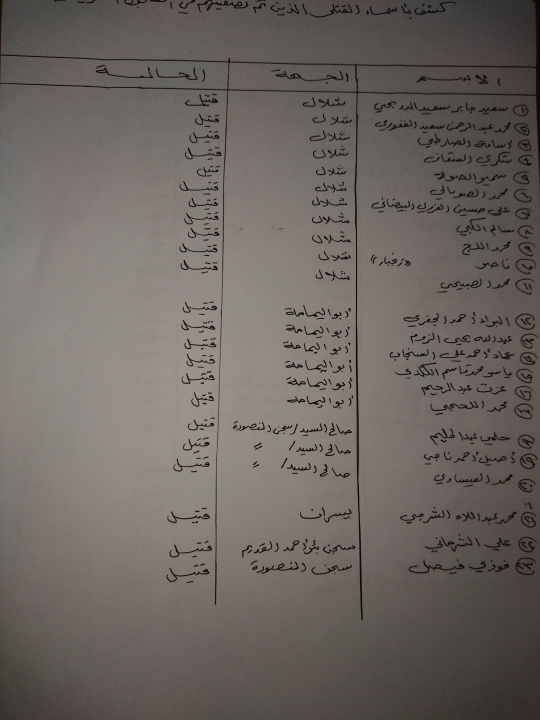 كشف بأسماء القتلى الذين تم تصفيتهم في
الاسم الجهة الحالة
① سعيد جابر سعيد شلال قتيل
② محمد عبدالرحمن سعيد شلال قتيل
③ أسامة شلال قتيل
④ شكري السقاف شلال قتيل
⑤ سمير شلال قتيل
⑥ محمد الصومالي شلال قتيل
⑦ علي حسين البيضاني شلال قتيل
⑧ سام شلال قتيل
⑨ محمد شلال قتيل
⑩ ناصر "زنجبار" شلال قتيل
⑪ محمد الصبيحي شلال قتيل
البراء أحمد الجفري أبو اليمامة قتيل
عبدالله يحيى أبو اليمامة قتيل
عماد أحمد علي أبو اليمامة قتيل
ياسر محمد قاسم الكلدي أبو اليمامة قتيل
عزت عبدالرحيم أبو اليمامة قتيل
محمد اللحجي أبو اليمامة قتيل
حلمي عبدالحليم صالح السيد/سجن المنصورة قتيل
أصيل أحمد ناجي صالح السيد/ " قتيل
محمد العيساوي صالح السيد/ " قتيل
محمد عبداللاه الشرجبي يسران قتيل
علي سجن بئر أحمد القديم قتيل
فوزي فيصل سجن المنصورة قتيل